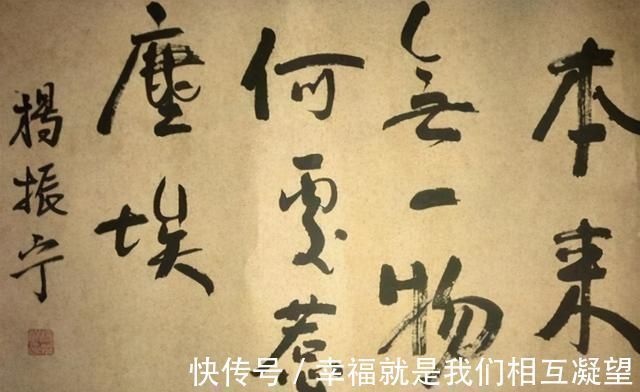 本来
無一物
何處惹
塵埃
楊振宁
快传号 / 幸福就是我们相互凝望